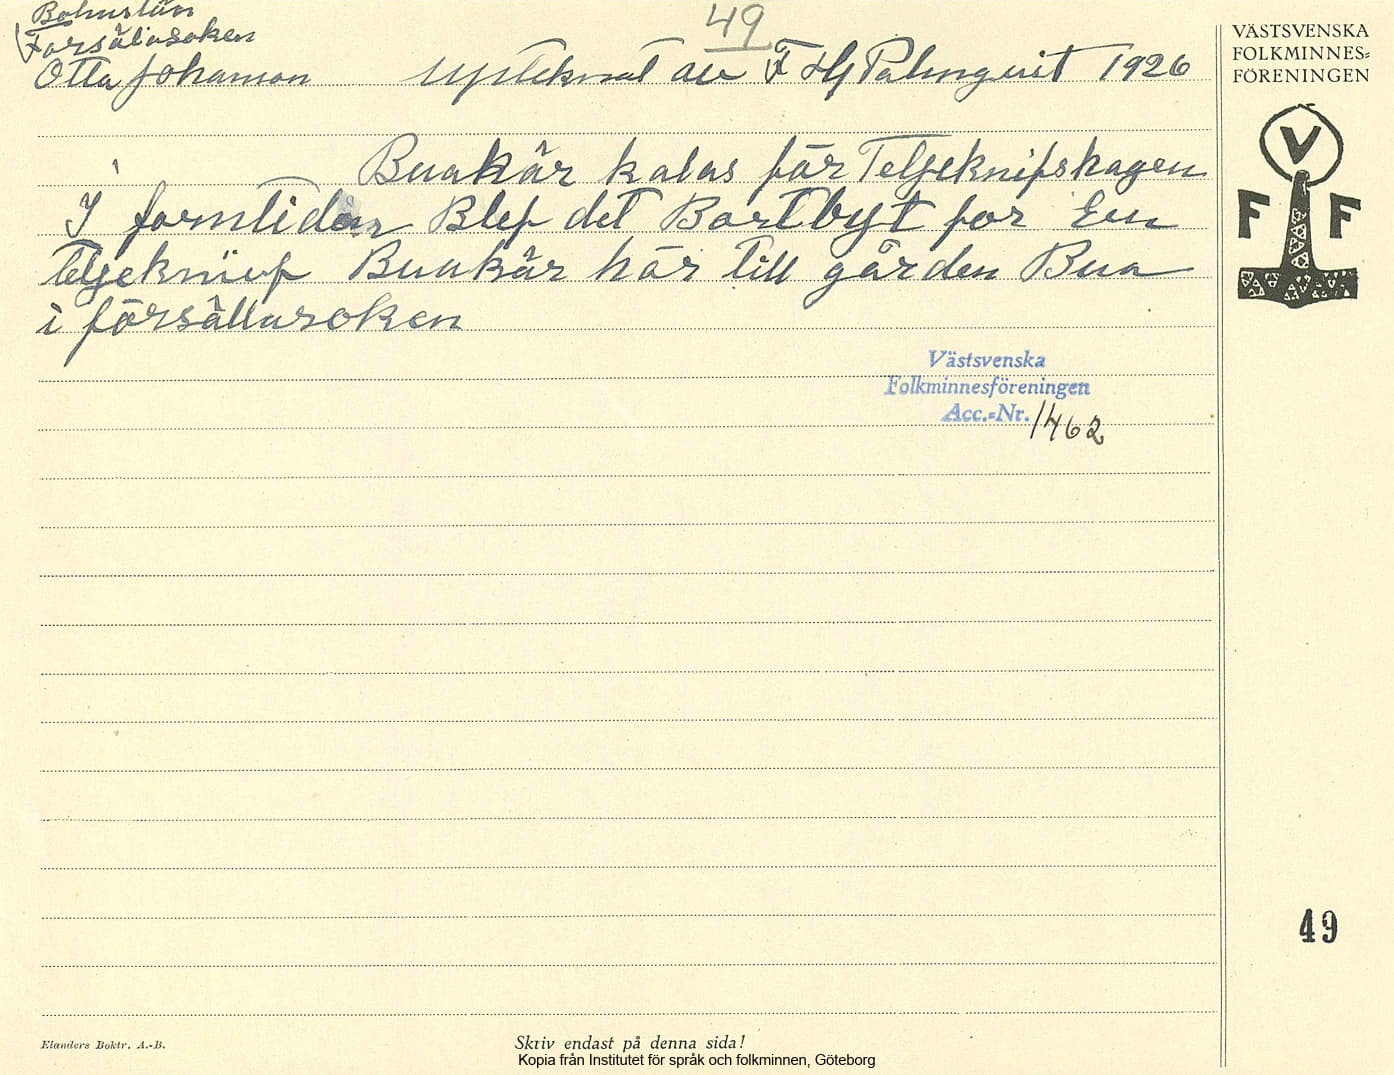 Bohuslän
Forsälasoken
49
Otto Johanson Upteknat av F Hj Palmquist 1926
Buakär kalas för Teljeknifskagen
I forntiden Blef det Bortbyt for En
Teljeknief Buakär hör till gården Bua
i försällasoken
Västsvenska
Folkminnesföreningen
Acc.-Nr. 1462
VÄSTSVENSKA
FOLKMINNES-
FÖRENINGEN
V
F F
49
Elanders Boktr. A.-B.
Skriv endast på denna sida!
Kopia från Institutet för språk och folkminnen, Göteborg